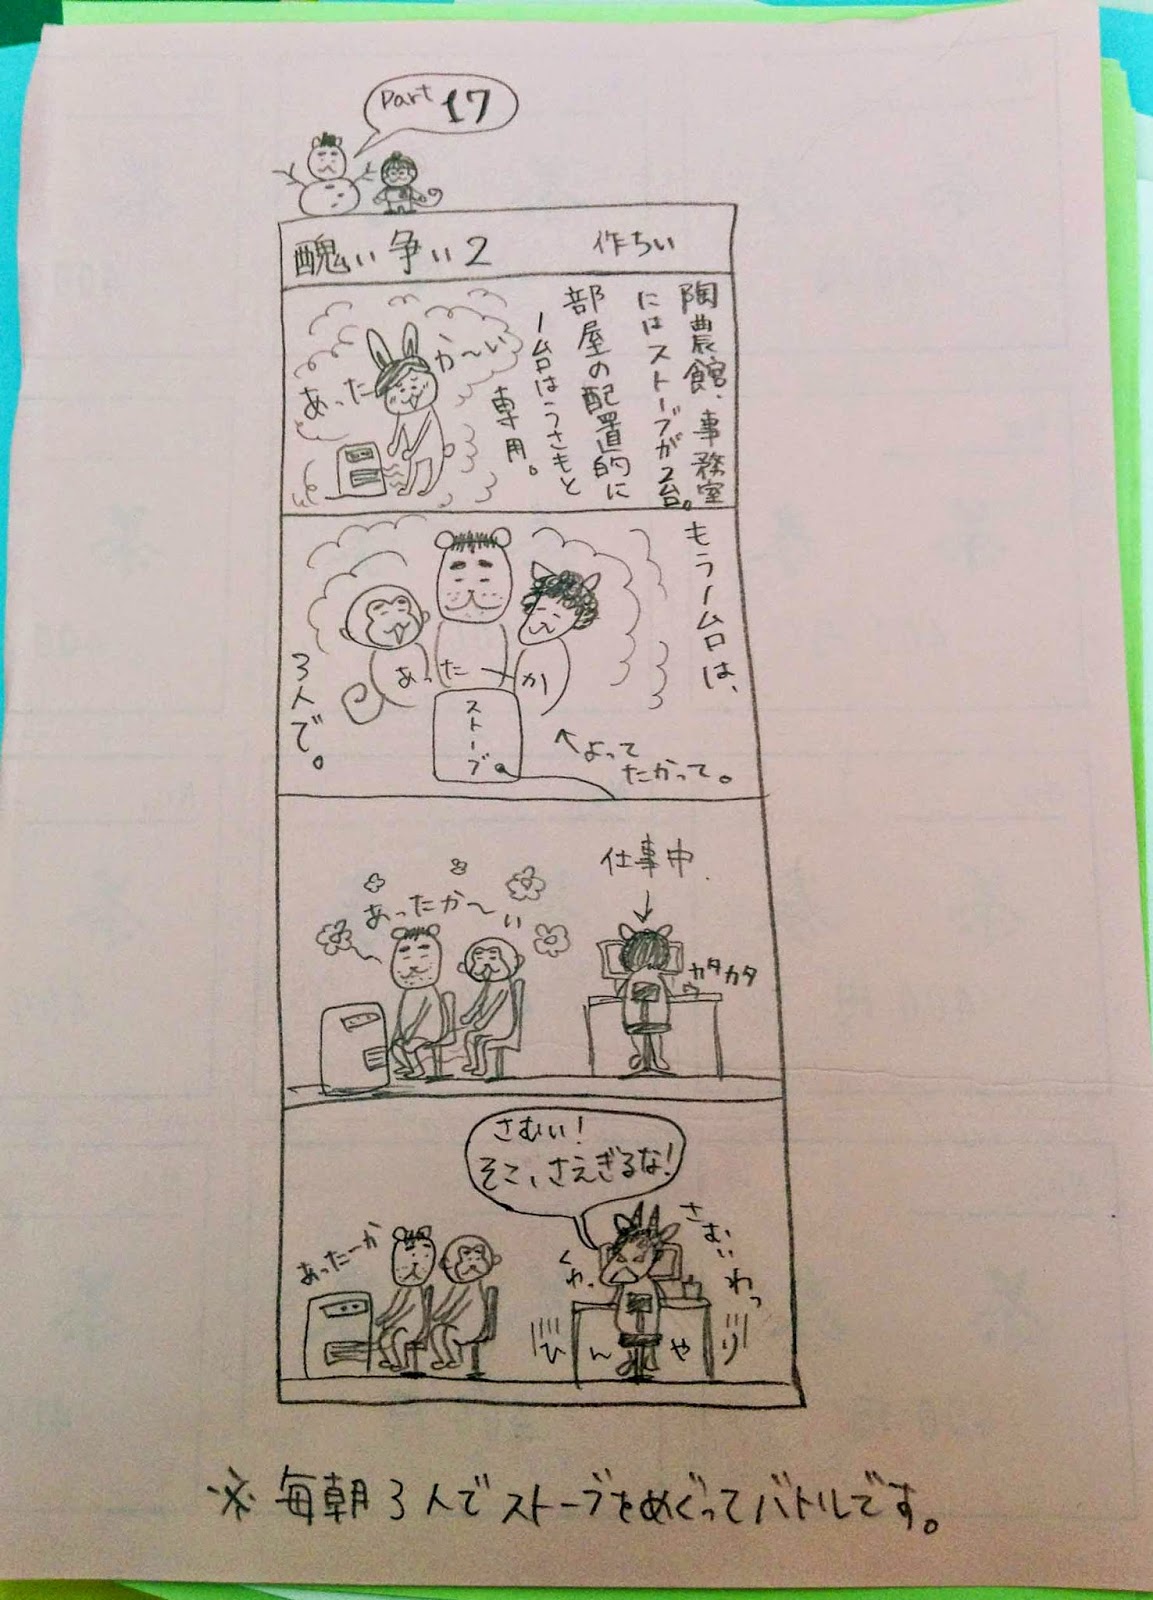 Part 17
醜い争い2
作ちい
陶農館、事務室
にはストーブが2台。
部屋の配置的に
1台はうさもと
専用。
あったか〜い
もう1台は、
あったーか
ストーブ
3人で。
←よって
たかって。
仕事中
あったか〜い
カタカタ
さむい!
そこ、さえぎるな!
あったーか
くわっ
さむいわっ
ひんやり
※毎朝3人でストーブをめぐってバトルです。